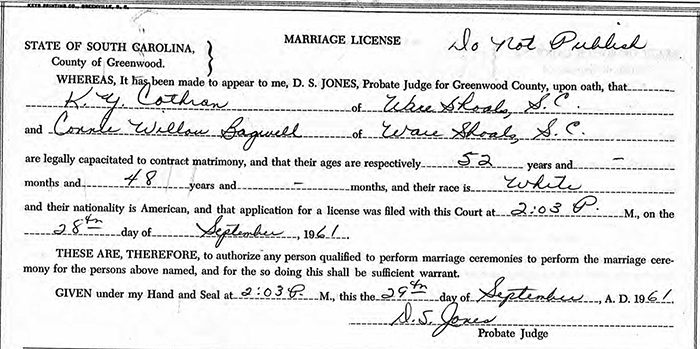 KEYS PRINTING CO., GREENVILLE, S. C.
MARRIAGE LICENSE Do Not Publish
STATE OF SOUTH CAROLINA,
County of Greenwood.
WHEREAS, It has been made to appear to me, D. S. JONES, Probate Judge for Greenwood County, upon oath, that
K. Y. Cothran of Ware Shoals, S.C.
and Connie Willow Bagwell of Ware Shoals, S.C.
are legally capacitated to contract matrimony, and that their ages are respectively 52 years and –
months and 48 years and – months, and their race is White
and their nationality is American, and that application for a license was filed with this Court at 2:03 P. M., on the
28th day of September, 1961.
THESE ARE, THEREFORE, to authorize any person qualified to perform marriage ceremonies to perform the marriage cere-
mony for the persons above named, and for the so doing this shall be sufficient warrant.
GIVEN under my Hand and Seal at 2:03 P. M., this the 29th day of September, A. D. 1961.
D. S. Jones
Probate Judge